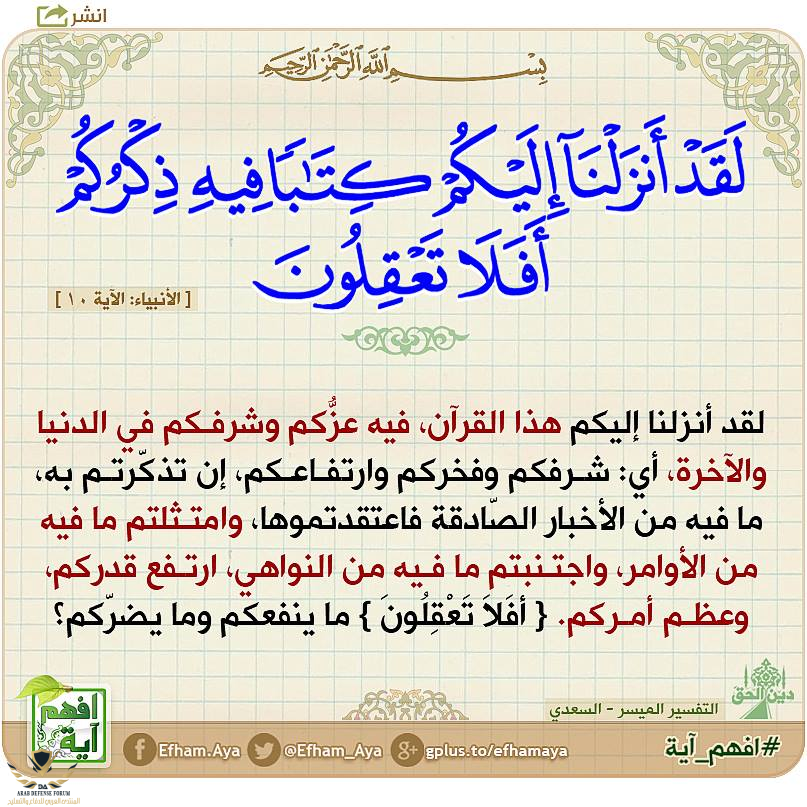 انشر
بِسْمِ اللَّهِ الرَّحْمَٰنِ الرَّحِيمِ
لَقَدْ أَنزَلْنَآ إِلَيْكُمْ كِتَٰبًا فِيهِ ذِكْرُكُمْ
أَفَلَا تَعْقِلُونَ
[ الأنبياء: الآية ١٠ ]
لقد أنزلنا إليكم هذا القرآن، فيه عزُّكم وشرفـكم في الدنيا
والآخرة، أي: شـرفكم وفخركم وارتفـاعـكم، إن تذكّرتـم به،
ما فيه من الأخبار الصّادقة فاعتقدتموها، وامتـثلتم ما فيه
من الأوامر، واجتـنبتم ما فـيه من النواهي، ارتـفع قدركم،
وعظـم أمـركم. { أفَلاَ تَعْقِلُونَ } ما ينفعكم وما يضرّكم؟
دين الحق
التفسير الميسر - السعدي
افهم
آية
Efham.Aya
@Efham_Aya
gplus.to/efhamaya
#افهم_آية
ARAB DEFENSE FORUM
المنتدى العربي للدفاع والتسليح